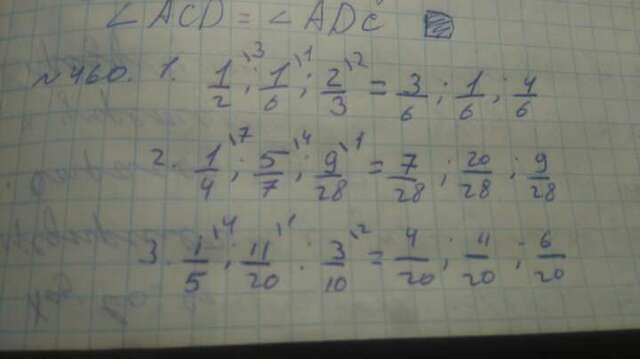 ∠ACD = ∠ADC
№460. 1. 1/2 \3 ; 1/6 \1 ; 2/3 \2 = 3/6 ; 1/6 ; 4/6
2. 1/4 \7 ; 5/7 \4 ; 9/28 \1 = 7/28 ; 20/28 ; 9/28
3. 1/5 \4 ; 11/20 \1 : 3/10 \2 = 4/20 ; 11/20 ; 6/20